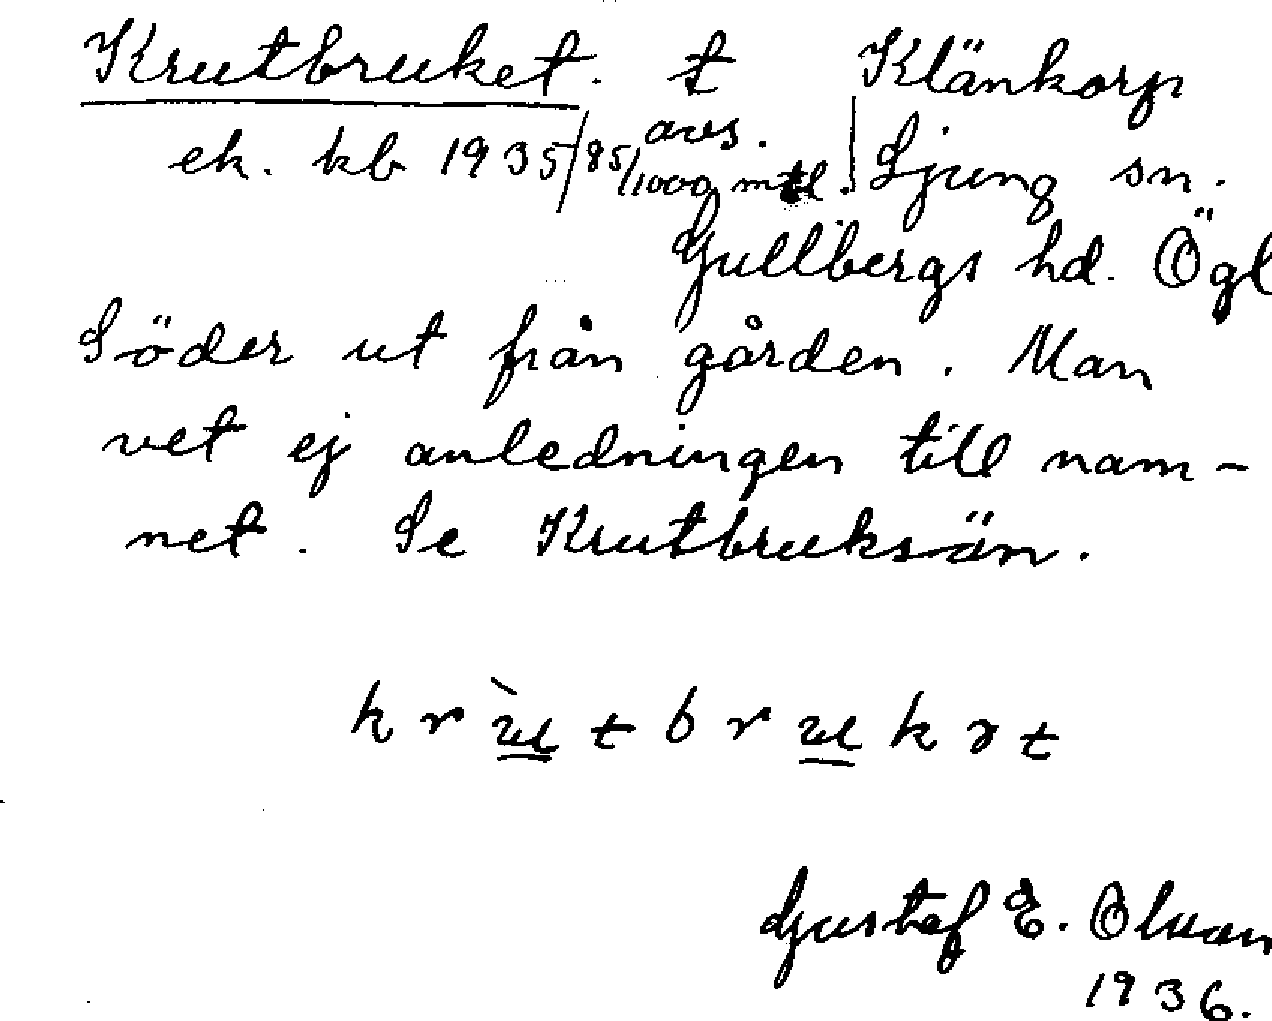 Krutbruket. t Klänkorp
avs.
ek. kb 1935/85/1000 mtl. Ljung sn.
Gullbergs hd. Ögl
Söder ut från gården. Man
vet ej anledningen till nam-
net. Se Krutbruksän.
krùtbrukət
Gustaf E. Olsson
1936.